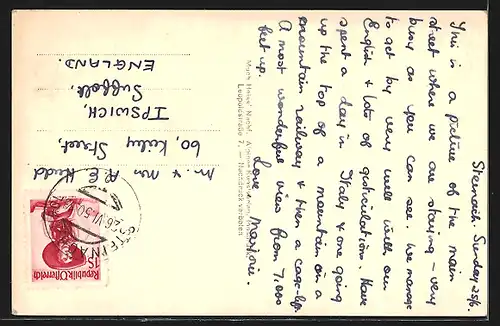 Steinach. Sunday 25/6.
This is a picture of the main
street where we are staying – very
busy as you can see. We manage
to get by very well with our
English & lots of gesticulation. Have
spent a day in Italy & one going
up the top of a mountain on a
mountain railway & then a cable-lift.
A most wonderful view from 7,000
feet up.
Love
Marjorie.
Leopoldstraße 7. — Nachdruck verboten
Mr & Mrs R. E. Kudd
60, Kirby Street,
IPSWICH,
Suffolk,
ENGLAND.
STEINACH
26.VI.50
1S
Republik Österreich